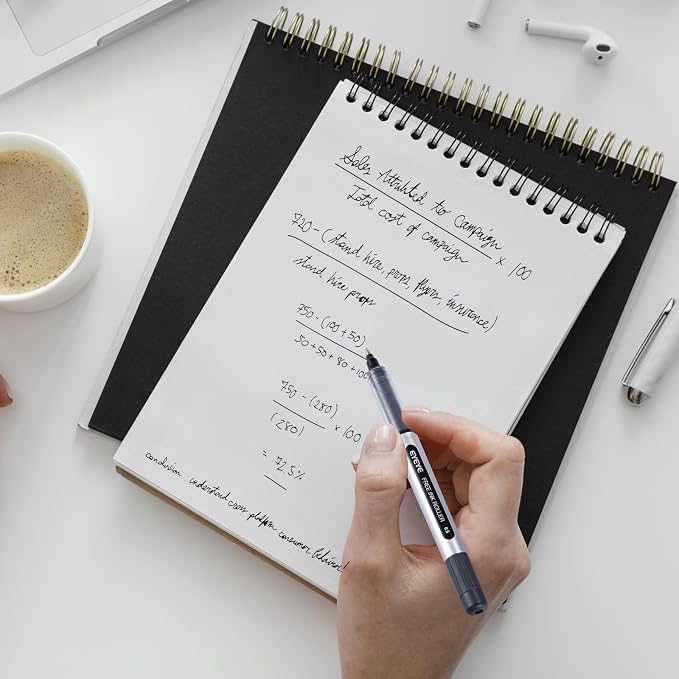 Sales Attributed to Campaign × 100
Total cost of campaign
720 - (stand hire, props, flyers, insurance)
stand hire props
750 - (100 + 50)
50 + 50 + 80 + 100
750 - (280) × 100
(280)
= 72.5%
conclusion. understand cross platform consumer behavior!
EYEYE FREE INK ROLLER 0.5